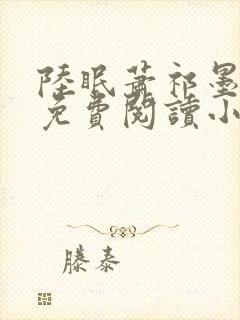 陸眠蕭祁墨
免費閱讀小
滕泰